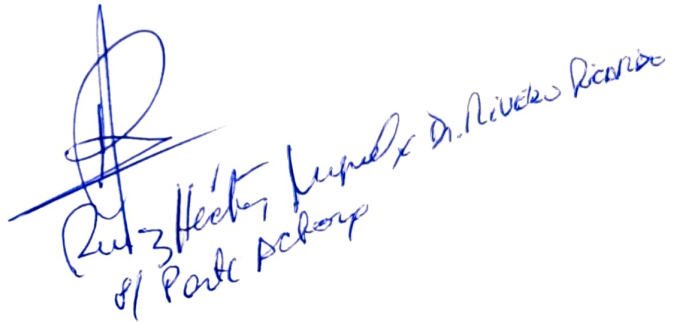 Ruiz Héctor Miguel x Dr. Rivero Ricardo
p/ Parte Actora